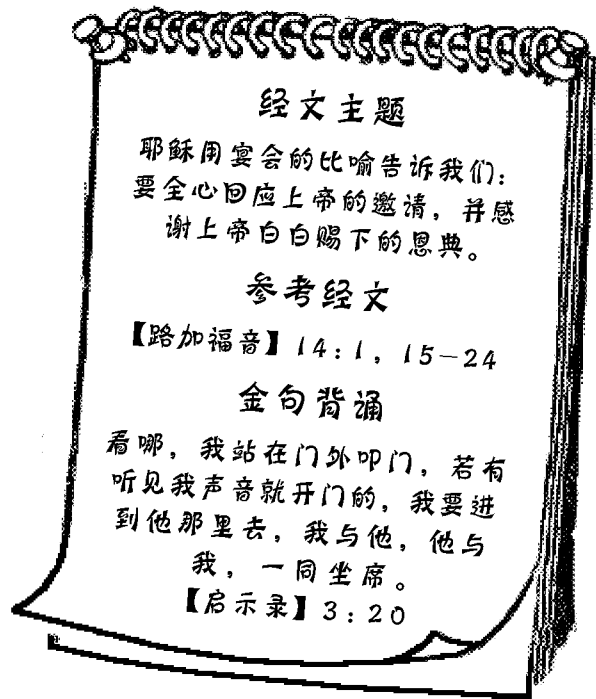 经文主题
耶稣用宴会的比喻告诉我们：
要全心回应上帝的邀请，并感
谢上帝白白赐下的恩典。
参考经文
【路加福音】14：1，15－24
金句背诵
看哪，我站在门外叩门，若有
听见我声音就开门的，我要进
到他那里去，我与他，他与
我，一同坐席。
【启示录】3：20